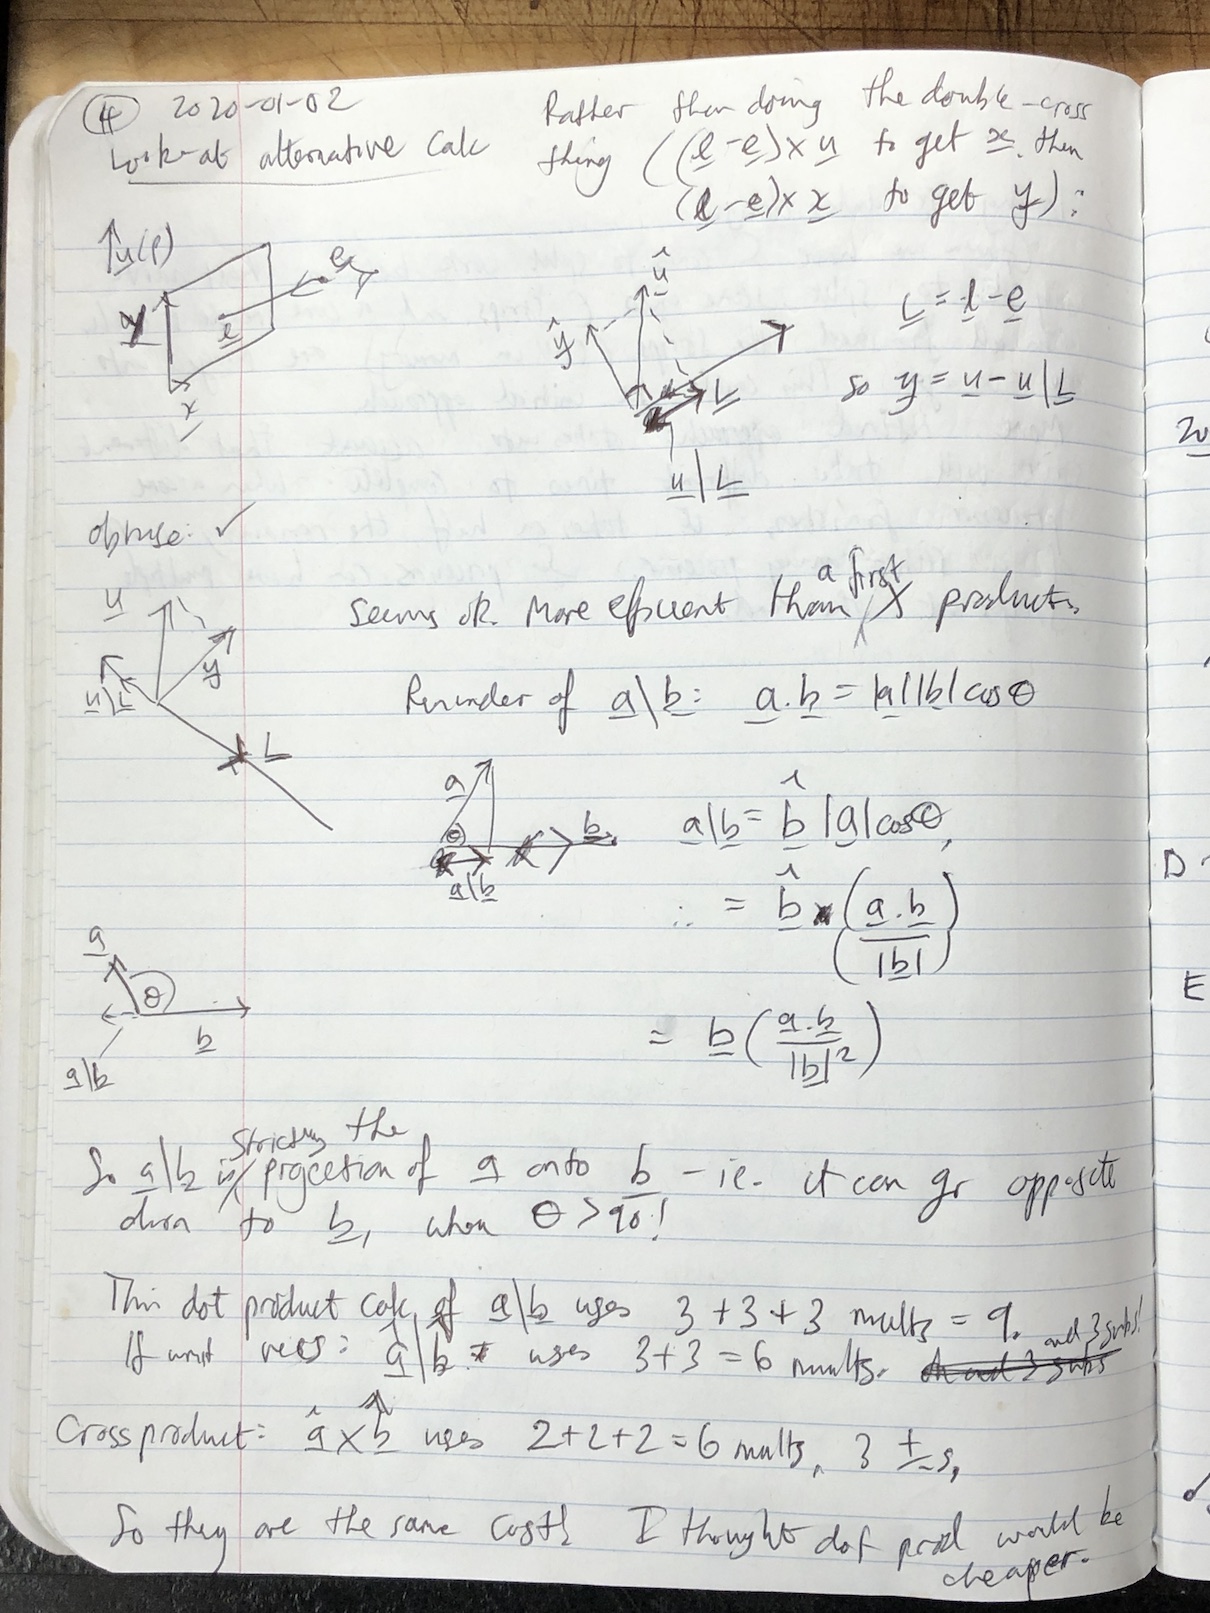 ④ 2020-01-02
Look-at alternative calc
Rather than doing the double-cross
thing ((l-e)×u to get x, then
(l-e)×x to get y):
u(p)
y
l
e
x
û
ŷ
L
u|L
L = l-e
so y = u - u|L
obtuse: ✓
u
y
u|L
L
Seems ok. More efficient than a first × product.
Reminder of a|b: a.b = |a||b|cosθ
a
θ
b
a|b
a|b = b̂ |a|cosθ,
∴ = b̂ (a.b / |b|)
= b (a.b / |b|²)
a
θ
b
a|b
So a|b is strictly the projection of a onto b - ie. it can go opposite
dirn to b, when θ > 90!
This dot product calc of a|b uses 3+3+3 mults = 9.
If unit vecs: â|b uses 3+3 = 6 mults. and 3 subs!
Cross product: â×b̂ uses 2+2+2 = 6 mults, 3 ±s,
So they are the same cost! I thought dot prod would be
cheaper.
20
D
E